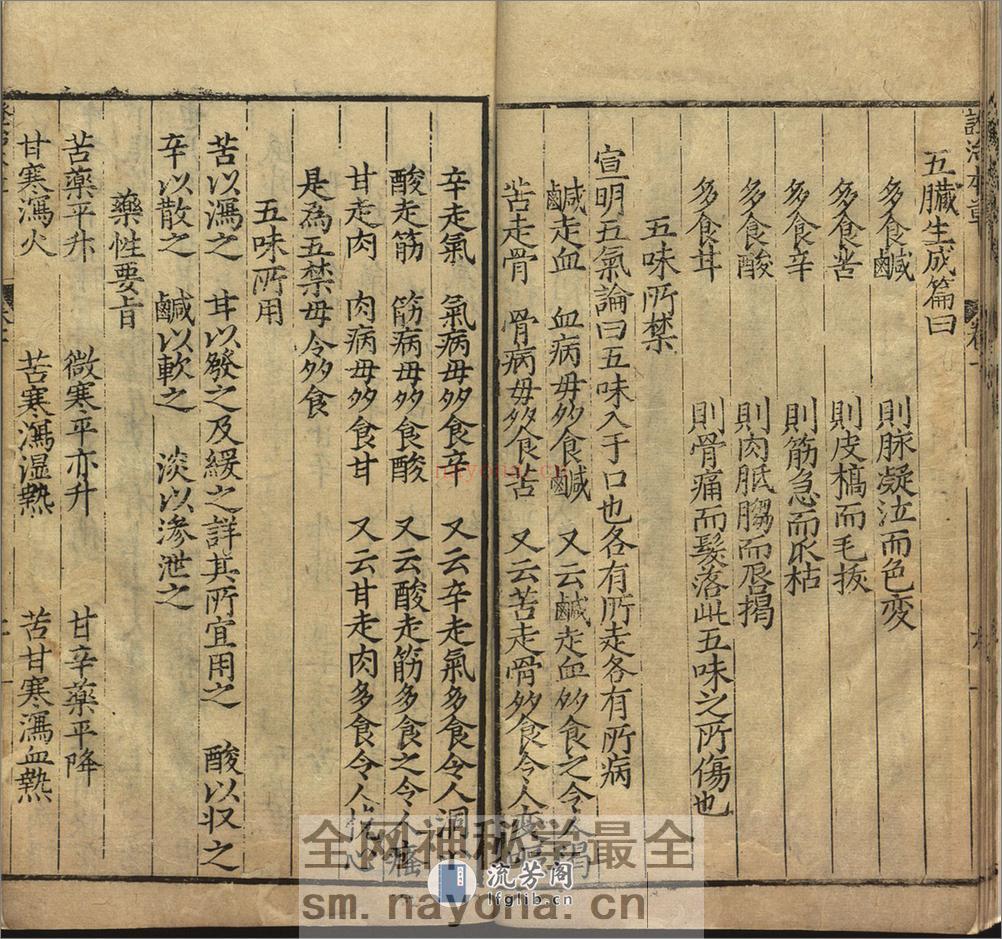 五臟生成篇曰
多食鹹 則脉凝泣而色変
多食苦 則皮槁而毛拔
多食辛 則筋急而爪枯
多食酸 則肉胝䐢而唇揭
多食甘 則骨痛而髮落此五味之所傷也
五味所禁
宣明五氣論曰五味入于口也各有所走各有所病
鹹走血 血病毋多食鹹 又云鹹走血多食之令人渴
苦走骨 骨病毋多食苦 又云苦走骨多食令人変
辛走氣 氣病毋多食辛 又云辛走氣多食令人洞
酸走筋 筋病毋多食酸 又云酸走筋多食之令人癃
甘走肉 肉病毋多食甘 又云甘走肉多食令人心
是為五禁毋令多食
五味所用
苦以瀉之 甘以發之及緩之詳其所宜用之 酸以収之
辛以散之 鹹以軟之 淡以滲泄之
藥性要旨
苦藥平升 微寒平亦升 甘辛藥平降
甘寒瀉火 苦寒瀉湿熱 苦甘寒瀉血熱
nayona.cn
全网神秘学最全
流芳阁
lfglib.cn
sm.nayona.cn